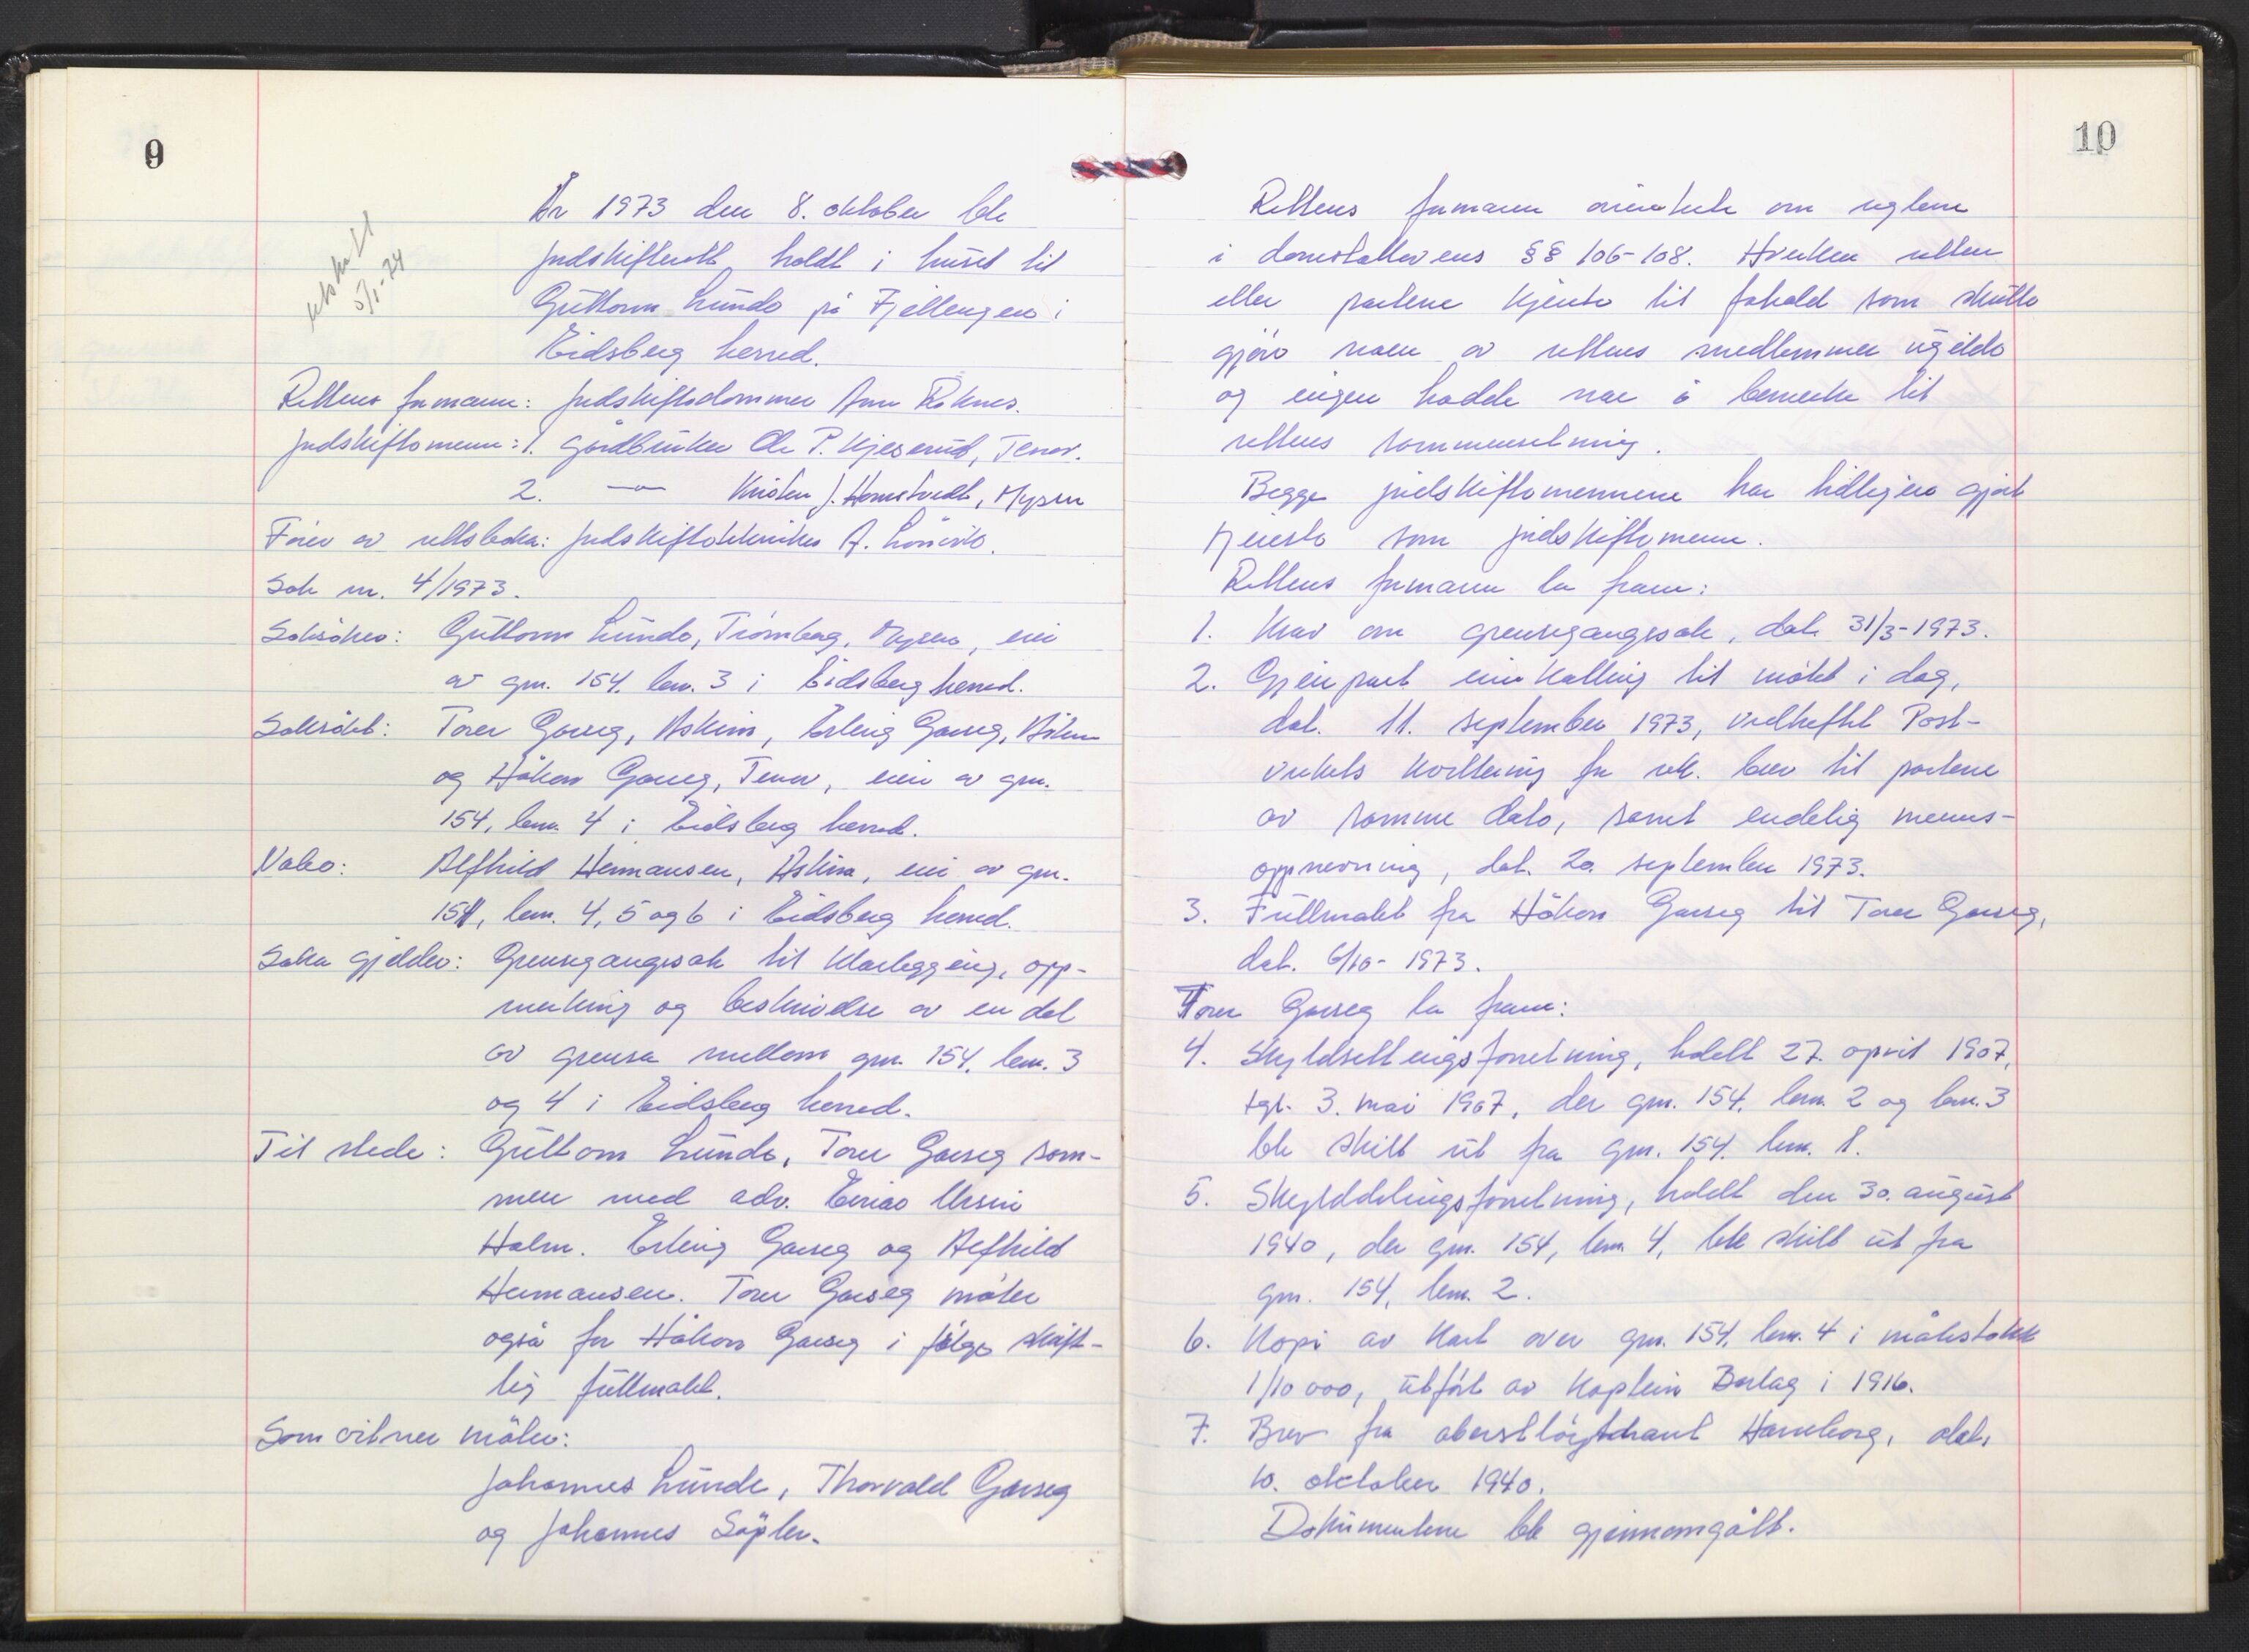 9
utskrift
5/1-74
År 1973 den 8. oktober ble
jordskifterett holdt i huset til
Guttorm Lunde på Fjellengen i
Eidsberg herred.
Rettens formann: Jordskiftedommer
Jordskiftemenn: 1. gårdbruker Ole P. Kjeserud, Tenor.
2. —"— Kristen J. Homstvedt, Mysen
Fører av rettsboka: Jordskiftetekniker A.
Sak nr. 4/1973.
Saksøker: Guttorm Lunde, Trømborg, Mysen, eier
av gnr. 154, bnr. 3 i Eidsberg herred.
Saksøkt: Tore Garseg, Askim, Erling Garseg, Askim
og Håkon Garseg, Tenor, eier av gnr.
154, bnr. 4 i Eidsberg herred.
Nabo: Alfhild Hermansen, Askim, eier av gnr.
154, bnr. 4, 5 og 6 i Eidsberg herred.
Saka gjelder: Grensegangssak til klarlegging, opp-
merking og beskrivelse av en del
av grensa mellom gnr. 154, bnr. 3
og 4 i Eidsberg herred.
Til stede: Guttorm Lunde, Tore Garseg sam-
men med adv. Ursin
Holm. Erling Garseg og Alfhild
Hermansen. Tore Garseg møter
også for Håkon Garseg i følge skrift-
lig fullmakt.
Som vitner møter:
Johannes Lunde, Thorvald Garseg
og Johannes
10
Rettens formann orienterte om reglene
i domstollovens §§ 106-108. Hverken retten
eller partene kjente til forhold som skulle
gjøre noen av rettens medlemmer ugilde
og ingen hadde noe å bemerke til
rettens sammensetning.
Begge jordskiftemennene har tidligere gjort
tjeneste som jordskiftemenn.
Rettens formann la fram:
1. Krav om grensegangssak, dat. 31/3-1973.
2. Gjenpart innkalling til møtet i dag,
dat. 11. september 1973, vedheftet Post-
verkets kvittering for rek. brev til partene
av samme dato, samt endelig menns-
oppnevning, dat. 20. september 1973.
3. Fullmakt fra Håkon Garseg til Tore Garseg,
dat. 6/10-1973.
Tore Garseg la fram:
4. Skyldsettingsforretning, holdt 27. april 1907,
tgl. 3. mai 1907, der gnr. 154, bnr. 2 og bnr. 3
ble skilt ut fra gnr. 154, bnr. 1.
5. Skylddelingsforretning, holdt den 30. august
1940, der gnr. 154, bnr. 4, ble skilt ut fra
gnr. 154, bnr. 2.
6. Kopi av kart over gnr. 154, bnr. 4 i målestokk
1/10 000, utført av kaptein i 1916.
7. Brev fra oberstløytnant Harreborg, dat.
10. oktober 1940.
Dokumentene ble gjennomgått.